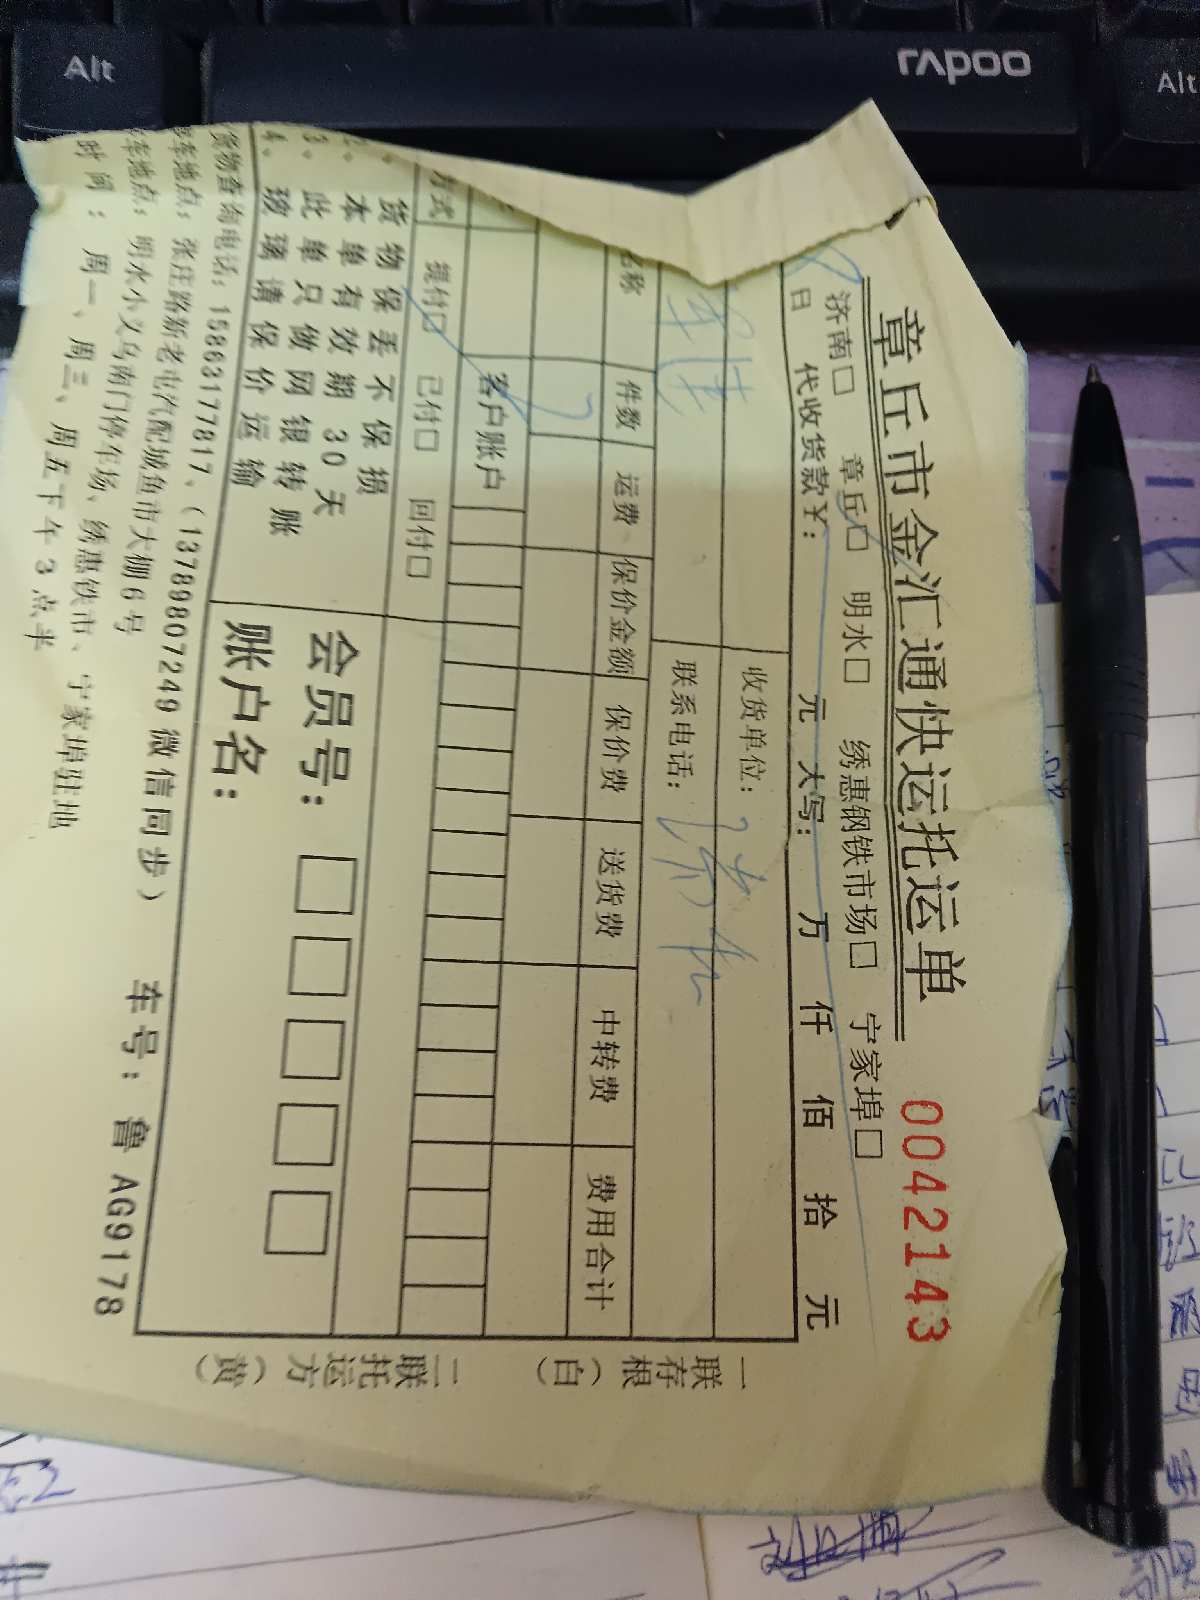 Alt
rapoo
Alt
章丘市金汇通快运托运单
0042143
济南□ 章丘□ 明水□ 绣惠钢铁市场□ 宁家埠□
日 代收货款￥: 元 大写: 万 仟 佰 拾 元
收货单位:
联系电话:
名称 件数 运费 保价金额 保价费 送货费 中转费 费用合计
客户账户
方式 提付□ 已付□ 回付□
货物保丢不保损
本单有效期30天
3、此单只做网银转账
4、玻璃请保价运输
会员号: □□□□□
账户名:
货物查询电话: 15863177817、(13789807249 微信同步) 车号: 鲁 AG9178
车地点: 张庄路新老屯汽配城鱼市大棚6号
车地点: 明水小义乌南门停车场、绣惠铁市、宁家埠驻地
时间: 周一、周三、周五下午3点半
一联存根(白)
二联托运方(黄)